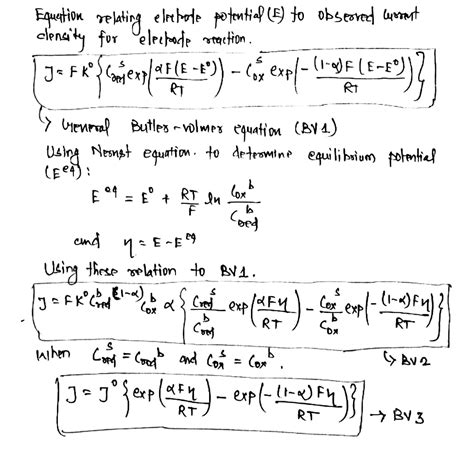 Equation relating electrode potential (E) to observed current
density for electrode reaction.
J = F K° { C_red^s exp( αF(E-E°) / RT ) - C_ox^s exp( - (1-α)F(E-E°) / RT ) }
→ General Butler-volmer equation (BV1)
Using Nernst equation. to determine equilibrium potential
(E^eq):
E^eq = E° + RT/F ln C_ox^b / C_red^b
and η = E - E^eq
Using these relation to BV1.
J = F K° C_red^b (1-α) C_ox^b α { C_red^s / C_red^b exp( αFη / RT ) - C_ox^s / C_ox^b exp( - (1-α)Fη / RT ) }
→ BV2
When C_red^s = C_red^b and C_ox^s = C_ox^b.
J = J° { exp( αFη / RT ) - exp( - (1-α)Fη / RT ) } → BV3